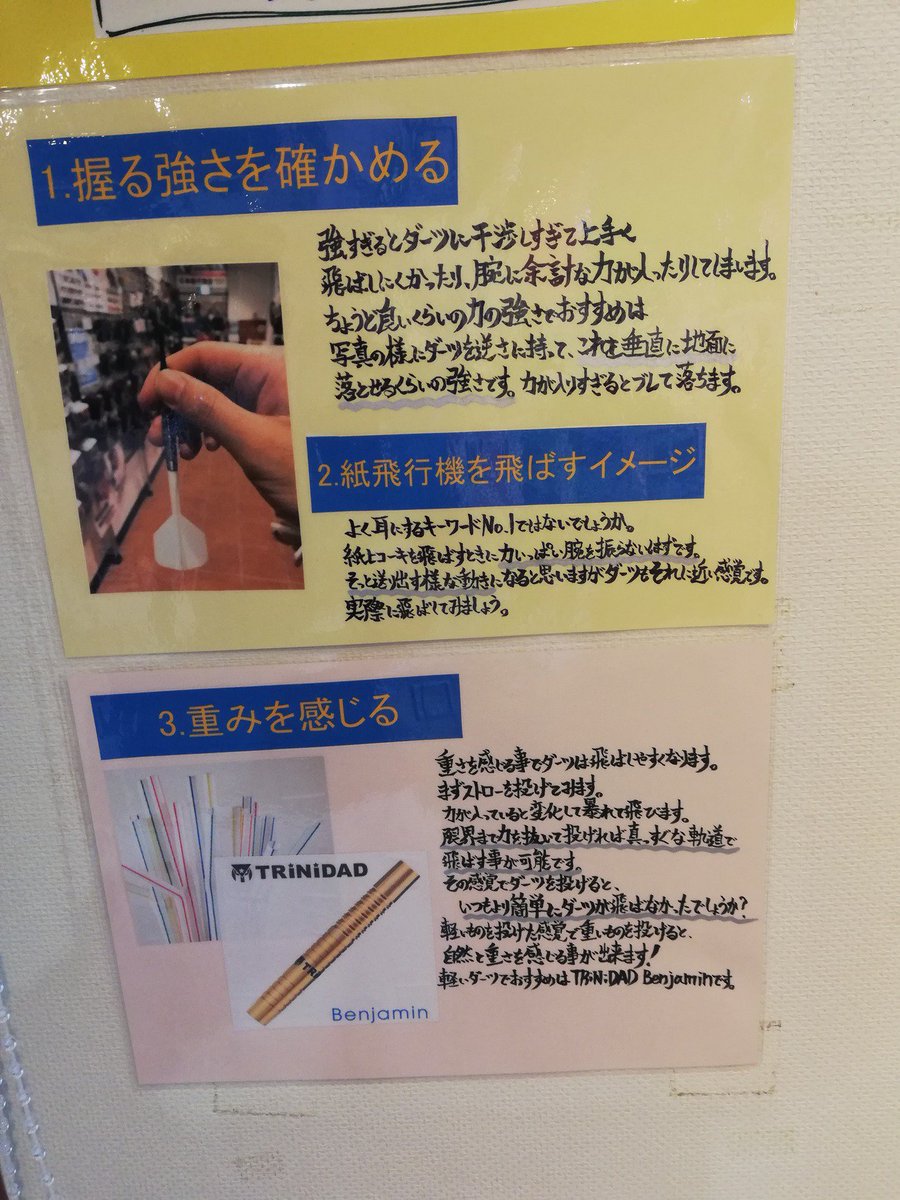 1.握る強さを確かめる
強すぎるとダーツに干渉しすぎて上手く
飛ばしにくかったり、腕に余計な力が入ったりしてしまいます。
ちょうど良いくらいの力の強さでおすすめは
写真の様にダーツを逆さに持って、これを垂直に地面に
落とせるくらいの強さです。力が入りすぎるとブレて落ちます。
2.紙飛行機を飛ばすイメージ
よく耳にするキーワードNo.1ではないでしょうか。
紙ヒコーキを飛ばすときに力いっぱい腕を振らないはずです。
そっと送り出す様な動きになると思いますがダーツもそれに近い感覚です。
実際に飛ばしてみましょう。
3.重みを感じる
重さを感じる事でダーツは飛ばしやすくなります。
まずストローを投げてみます。
力が入っていると変化して暴れて飛びます。
限界まで力を抜いて投げれば真っすぐな軌道で
飛ばす事が可能です。
その感覚でダーツを投げると、
いつもより簡単にダーツが飛ばなかったでしょうか?
軽いものを投げた感覚で重いものを投げると、
自然と重さを感じる事が出来ます!
軽いダーツでおすすめはTRiNiDAD Benjaminです。
TRiNiDAD
TRi
Benjamin